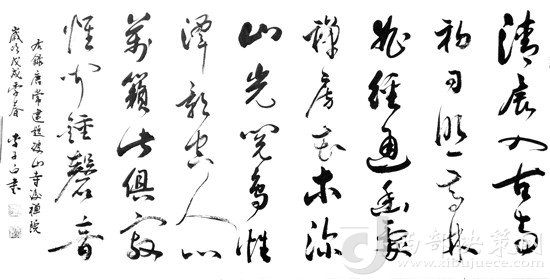 清晨入古寺
初日照高林
曲徑通幽處
禪房花木深
山光悅鳥性
潭影空人心
萬籟此俱寂
惟聞鐘磬音
右錄唐常建題破山寺後禪院
歲次戊戌季春
西部决策网
xibujuece.com